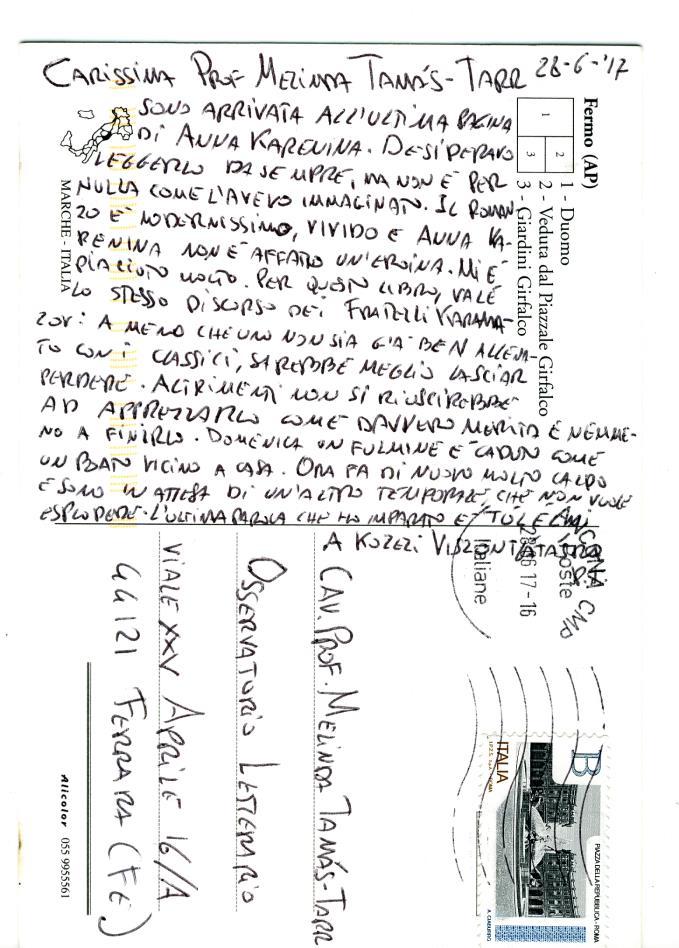 CARISSIMA PROF MELINDA TAMÁS-TARR 28-6-'17
SONO ARRIVATA ALL'ULTIMA PAGINA
DI ANNA KARENINA. DESIDERAVO
LEGGERLO DA SEMPRE, MA NON È PER
NULLA COME L'AVEVO IMMAGINATO. IL ROMAN-
ZO È MODERNISSIMO, VIVIDO E ANNA KA-
RENINA NON È AFFATO UN'EROINA. MI È
PIACIUTO MOLTO. PER QUESTO LIBRO, VALE
LO STESSO DISCORSO DEI FRATELLI KARAMA-
ZOV: A MENO CHE UNO NON SIA GIA' BEN ALLENA-
TO CON I CLASSICI, SAREBBE MEGLIO LASCIAR
PERDERE. ALTRIMENTI NON SI RIUSCIREBBE
AD APPREZZARLO COME DAVVERO MERITA E NEMME-
NO A FINIRLO. DOMENICA UN FULMINE È CADUTO COME
UN BOATO VICINO A CASA. ORA FA DI NUOVO MOLTO CALDO
E SONO IN ATTESA DI UN'ALTRO TEMPORALE, CHE NON VUOLE
ESPLODERE. L'ULTIMA PAROLA CHE HO IMPARATO È
A KÖZELI VISZONTLÁTÁSRA
Fermo (AP)
1 - Duomo
2 - Veduta dal Piazzale Girfalco
3 - Giardini Girfalco
1
2
3
MARCHE - ITALIA
ANCONA CMP
Poste
28.06 17-16
Italiane
CAV. PROF. MELINDA TAMÁS-TARR
OSSERVATORIO LETTERARIO
VIALE XXV APRILE 16/A
44121 FERRARA (FE)
Alicolor 055 9955561
B
ITALIA
PIAZZA DELLA REPUBBLICA - ROMA